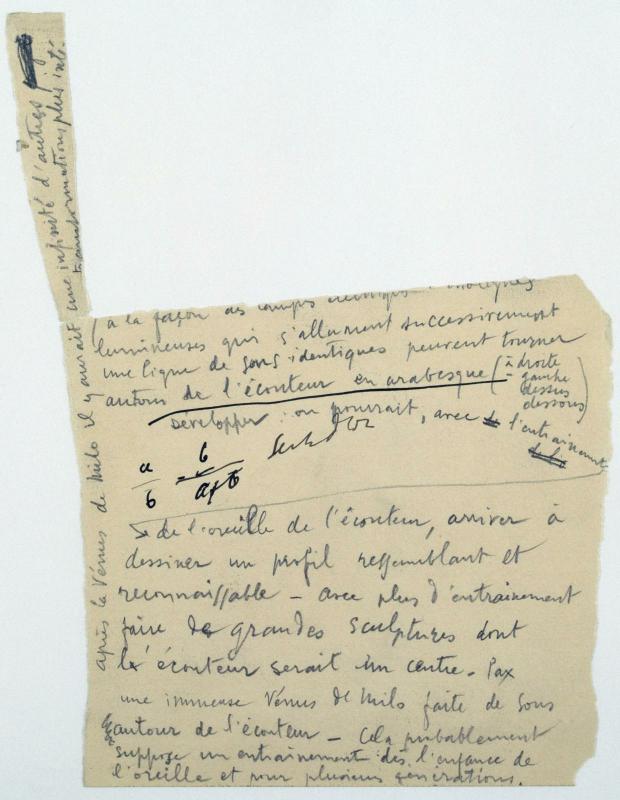 à la façon des lampes électriques
lumineuses qui s'allument successivement
une ligne de sons identiques peuvent tourner
autour de l'écouteur en arabesque (à droite
– gauche
dessus
dessous)
Développer : on pourrait, avec l'entrainement
a/b = b/a+b
de l'oreille de l'écouteur, arriver à
dessiner un profil ressemblant et
reconnaissable – avec plus d'entrainement
faire de grandes sculptures dont
l'écouteur serait un centre – Par
une immense Vénus de Milo faite de sons
autour de l'écouteur – Cela probablement
suppose un entrainement dès l'enfance de
l'oreille et pour plusieurs générations.
après la Vénus de Milo il y aurait une infinité d'autres
transformations plus inté.